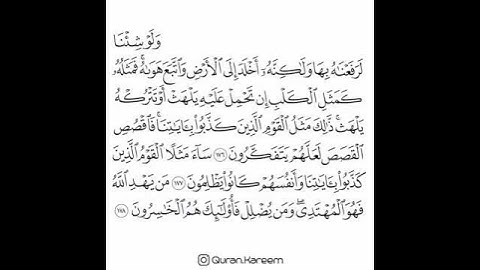 وَلَوْ شِئْنَا
لَرَفَعْنَٰهُ بِهَا وَلَٰكِنَّهُۥٓ أَخْلَدَ إِلَى ٱلْأَرْضِ وَٱتَّبَعَ هَوَىٰهُ ۚ فَمَثَلُهُۥ
كَمَثَلِ ٱلْكَلْبِ إِن تَحْمِلْ عَلَيْهِ يَلْهَثْ أَوْ تَتْرُكْهُ
يَلْهَث ۚ ذَّٰلِكَ مَثَلُ ٱلْقَوْمِ ٱلَّذِينَ كَذَّبُوا۟ بِـَٔايَٰتِنَا ۚ فَٱقْصُصِ
ٱلْقَصَصَ لَعَلَّهُمْ يَتَفَكَّرُونَ ١٧٦ سَآءَ مَثَلًا ٱلْقَوْمُ ٱلَّذِينَ
كَذَّبُوا۟ بِـَٔايَٰتِنَا وَأَنفُسَهُمْ كَانُوا۟ يَظْلِمُونَ ١٧٧ مَن يَهْدِ ٱللَّهُ
فَهُوَ ٱلْمُهْتَدِى ۖ وَمَن يُضْلِلْ فَأُو۟لَٰٓئِكَ هُمُ ٱلْخَٰسِرُونَ ١٧٨
Quran.Kareem